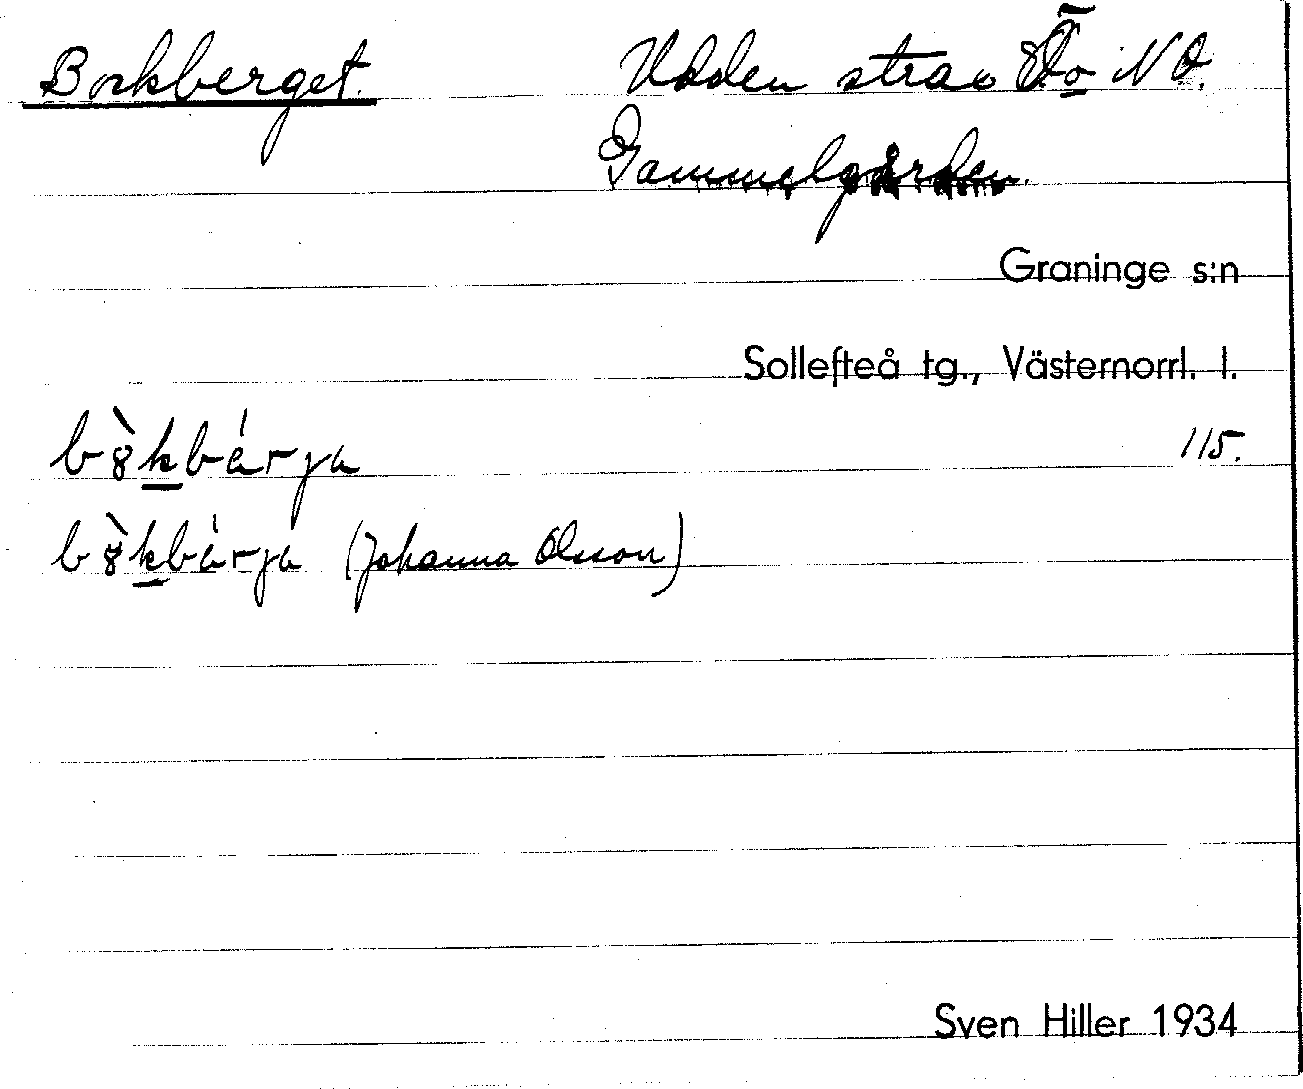 Bockberget. Udden strax SO i NO.
Gammelgården.
Graninge s:n
Sollefteå tg., Västernorrl. l.
115.
(Johanna Olsson)
Sven Hiller 1934